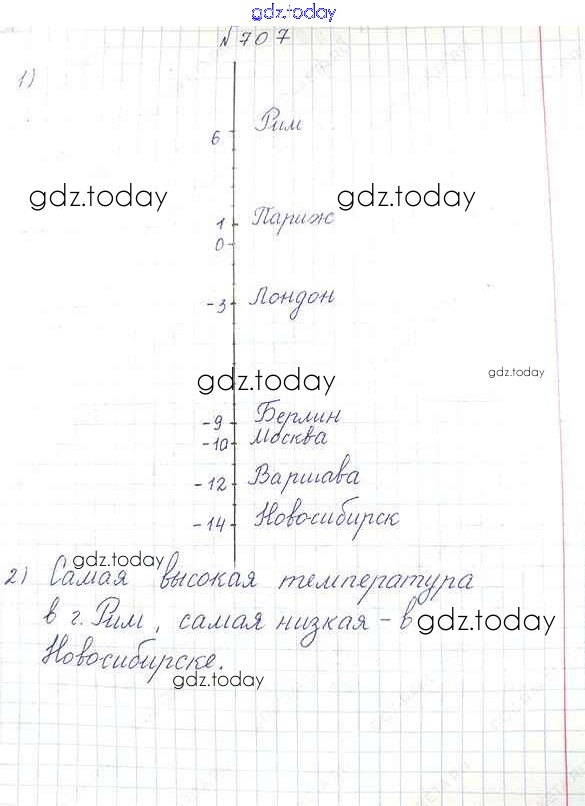 gdz.today
№ 707
1)
6 Рим
gdz.today gdz.today
1 Париж
0
-3 Лондон
gdz.today gdz.today
-9 Берлин
-10 Москва
-12 Варшава
-14 Новосибирск
gdz.today
2) Самая высокая температура
в г. Рим, самая низкая - в
gdz.today
Новосибирске.
gdz.today